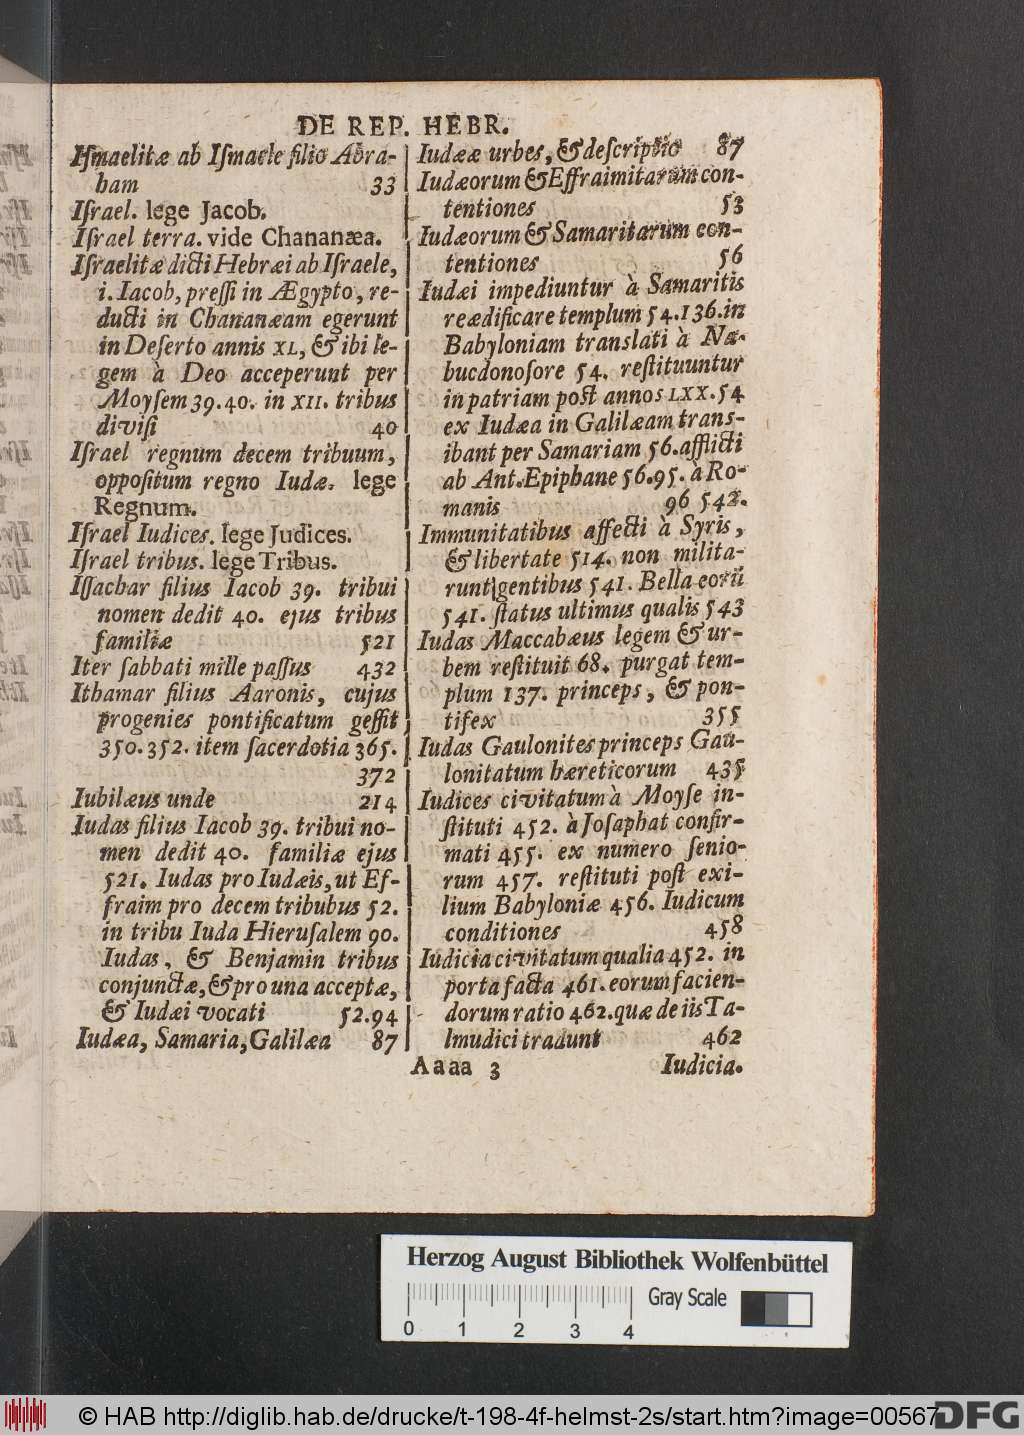 DE REP. HEBR.
Iſmaelitæ ab Iſmaele filio Abra-
ham 33
Iſrael. lege Jacob.
Iſrael terra. vide Chananæa.
Iſraelitæ dicti Hebræi ab Iſraele,
i. Iacob, preſſi in Ægypto, re-
ducti in Chananæam egerunt
in Deſerto annis XL, & ibi le-
gem à Deo acceperunt per
Moyſem 39.40. in XII. tribus
diviſi 40
Iſrael regnum decem tribuum,
oppoſitum regno Iudæ. lege
Regnum.
Iſrael Iudices. lege Judices.
Iſrael tribus. lege Tribus.
Iſſachar filius Iacob 39. tribui
nomen dedit 40. ejus tribus
familiæ 521
Iter ſabbati mille paſſus 432
Ithamar filius Aaronis, cujus
progenies pontificatum geſſit
350.352. item ſacerdotia 365.
372
Iubilæus unde 214
Iudas filius Iacob 39. tribui no-
men dedit 40. familiæ ejus
521. Iudas pro Iudæis, ut Ef-
fraim pro decem tribubus 52.
in tribu Iuda Hieruſalem 90.
Iudas, & Benjamin tribus
conjunctæ, & pro una acceptæ,
& Iudæi vocati 52.94
Iudæa, Samaria, Galilæa 87
Iudææ urbes, & deſcriptio 87
Iudæorum & Effraimitarum con-
tentiones 53
Iudæorum & Samaritarum con-
tentiones 56
Iudæi impediuntur à Samaritis
reædificare templum 54.136. in
Babyloniam translati à Na-
bucdonoſore 54. reſtituuntur
in patriam poſt annos LXX. 54
ex Iudæa in Galilæam trans-
ibant per Samariam 56. afflicti
ab Ant. Epiphane 56.95. à Ro-
manis 96 542.
Immunitatibus affecti à Syris,
& libertate 514. non milita-
runt gentibus 541. Bella eorū
541. ſtatus ultimus qualis 543
Iudas Maccabæus legem & ur-
bem reſtituit 68. purgat tem-
plum 137. princeps, & pon-
tifex 355
Iudas Gaulonites princeps Gau-
lonitatum hæreticorum 435
Iudices civitatum à Moyſe in-
ſtituti 452. à Joſaphat confir-
mati 455. ex numero ſenio-
rum 457. reſtituti poſt exi-
lium Babyloniæ 456. Iudicum
conditiones 458
Iudicia civitatum qualia 452. in
porta facta 461. eorum facien-
dorum ratio 462. quæ de iis Ta-
lmudici tradunt 462
Aaaa 3 Iudicia.
Herzog August Bibliothek Wolfenbüttel
Gray Scale
0 1 2 3 4
© HAB http://diglib.hab.de/drucke/t-198-4f-helmst-2s/start.htm?image=00567
DFG